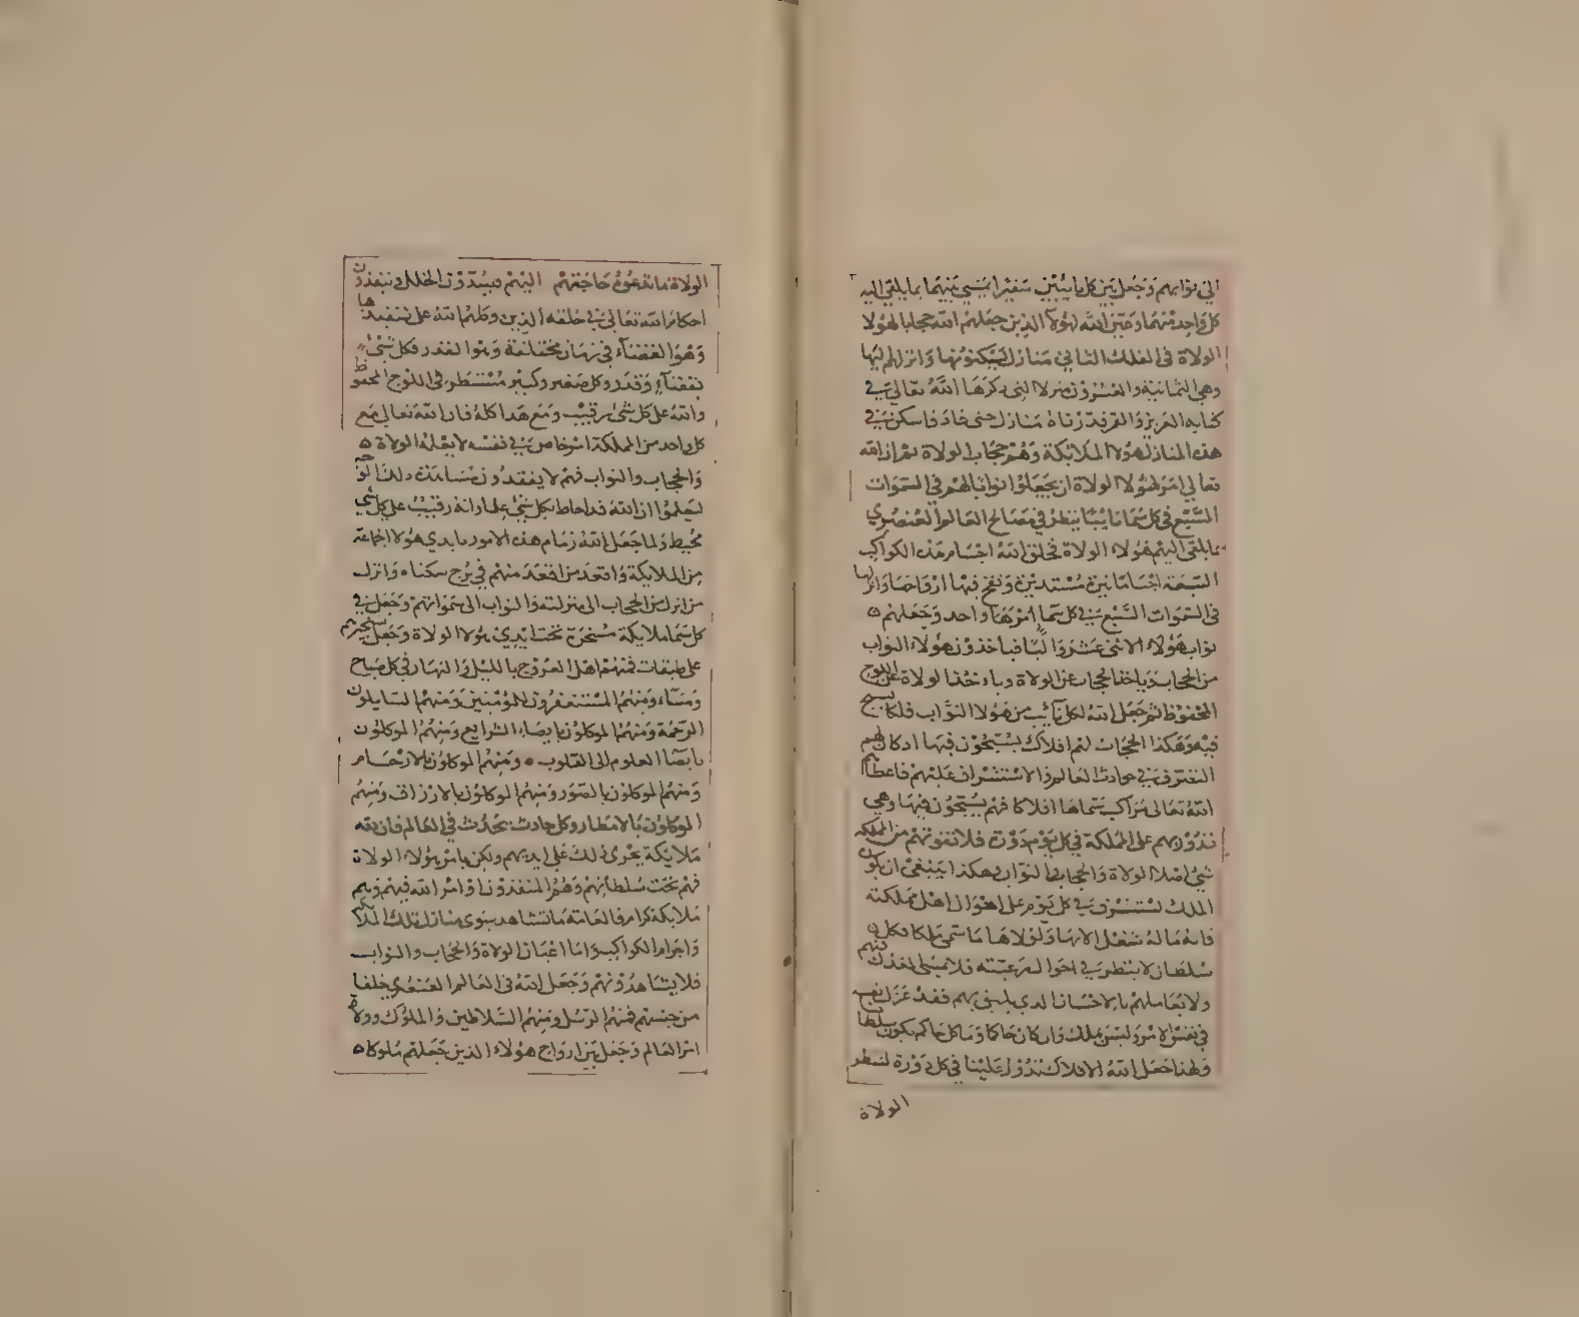 الى نوابهم وجعل بين كل نايبين سفيرا يمشي بينهما بما يلقى اليه
كل واحد منهما وعين الله لهولا الذين جعلهم الله حجابا لهولا
الولاة فى الفلك الثاني منازل يسكنونها وانزلهم اليها
وهي الثمانية والعشرون منزلا التى ذكرها الله تعالى في
كتابه العزيز والقمر قدرناه منازل حتى عاد فاسكن في
هذه المنازل هولا الملايكة وهم حجاب الولاة ثم ان الله
تعالى امر هولا الولاة ان يجعلوا نوابا لهم في السموات
السبع في كل سما نايبا ينظر في مصالح العالم العنصري
بما يلقى اليهم هولاء الولاة فخلق الله اجسام هذه الكواكب
السبعة اجساما نيرة مستديرة ونفخ فيها ارواحها وانزلها
فى السموات السبع في كل سما منها واحد وجعلهم
نواب هولاء الاثنى عشر واليا فياخذون هولاء النواب
من الحجاب وياخذ الحجاب عن الولاة وياخذ الولاة عن اللوح
المحفوظ ثم جعل الله لكل نايب من هولا النواب فلكا يسبح
فيه وهكذا الحجاب لهم افلاك يسبحون فيها اذ كان لهم
التصرف في حوادث العالم والاستشراف عليهم فاعطاهم
الله تعالى مراكب سماها افلاكا فهم يسبحون فيها وهي
تدور بهم على المملكة في كل يوم دورة فلا تفوتهم من المملكة
شي اصلا الولاة والحجاب والنواب هكذا ينبغي ان يكون
الملك يستشرف في كل يوم على احوال اهل مملكته
فانه ما له شغل الا بها ولولاها ما سمى ملكا فكل
سلطان لا ينظر في احوال رعيته فلا يمشي العدل فيهم
ولا يعاملهم بالاحسان الذي يليق بهم فقد عزل نفسه
في نفس الامر وليس بملك وان كان حاكما وما كل حاكم يكون سلطانا
ولهذا جعل الله الافلاك تدور علينا في كل دورة لينظر
الولاة
الولاة ما تدعوهم حاجتهم اليهم فيسدون الخلل وينفذون
احكام الله تعالى في خلقه الذين وكلهم الله على تنفيذها
وهو القضاء في زمان مختلفة وهو القدر فكل شيء
بقضاء وقدر وكل صغير وكبير مستطر في اللوح المحفوظ
والله على كل شى رقيب ومع هذا كله فان الله تعالى مع
كل واحد من المملكة امر خاص في نفسه لا يعلمه الولاة
والحجاب والنواب فهم لا يفقدون مشاهدة ذلك الوجه
ليعلموا ان الله قد احاط بكل شي علما وانه رقيب على كل شي
محيط ولما جعل الله زمام هذه الامور بايدي هولا الجماعة
من الملايكة واقعد من اقعد منهم في برج سكناه وانزل
من انزل من الحجاب الى منزلته والنواب الى سمواتهم وجعل في
كل سما ملايكة مسخرة تحت ايدي هولا الولاة وجعل تسخيرهم
على طبقات فمنهم اهل العروج بالليل والنهار في كل صباح
ومساء ومنهم المستغفرون للمومنين ومنهم السايلون
الرحمة ومنهم الموكلون بايصال الشرايع ومنهم الموكلون
بايصال العلوم الى القلوب ومنهم الموكلون بالارحام
ومنهم الموكلون بالصور ومنهم الموكلون بالارزاق ومنهم
الموكلون بالامطار وكل حادث يحدث في العالم فان لله
ملايكة يجرى ذلك على ايديهم ولكن بامر هولاء الولاة
فهم تحت سلطانهم وهم المنفذون اوامر الله فيهم وهم
ملايكة كرام فالعامة ما تشاهد سوى منازل تلك الملايكة
واجرام الكواكب واما اعيان الولاة والحجاب والنواب
فلا يشاهدونهم وجعل الله فى العالم العنصري خلفا
من جنسهم فمنهم الرسل ومنهم السلاطين والملوك وولاة
امر العالم وجعل بين ارواح هولاء الذين جعلهم ملوكا